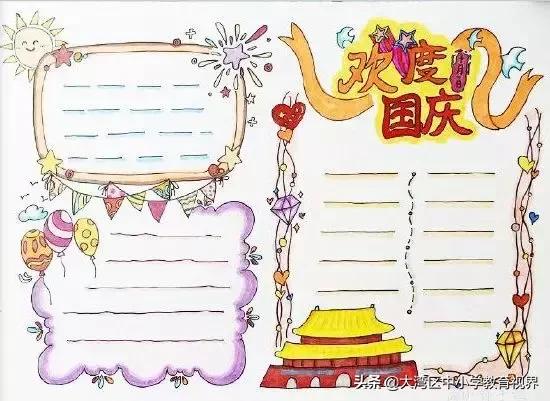 欢度
国庆
头条 @大湾区中小学教育视界